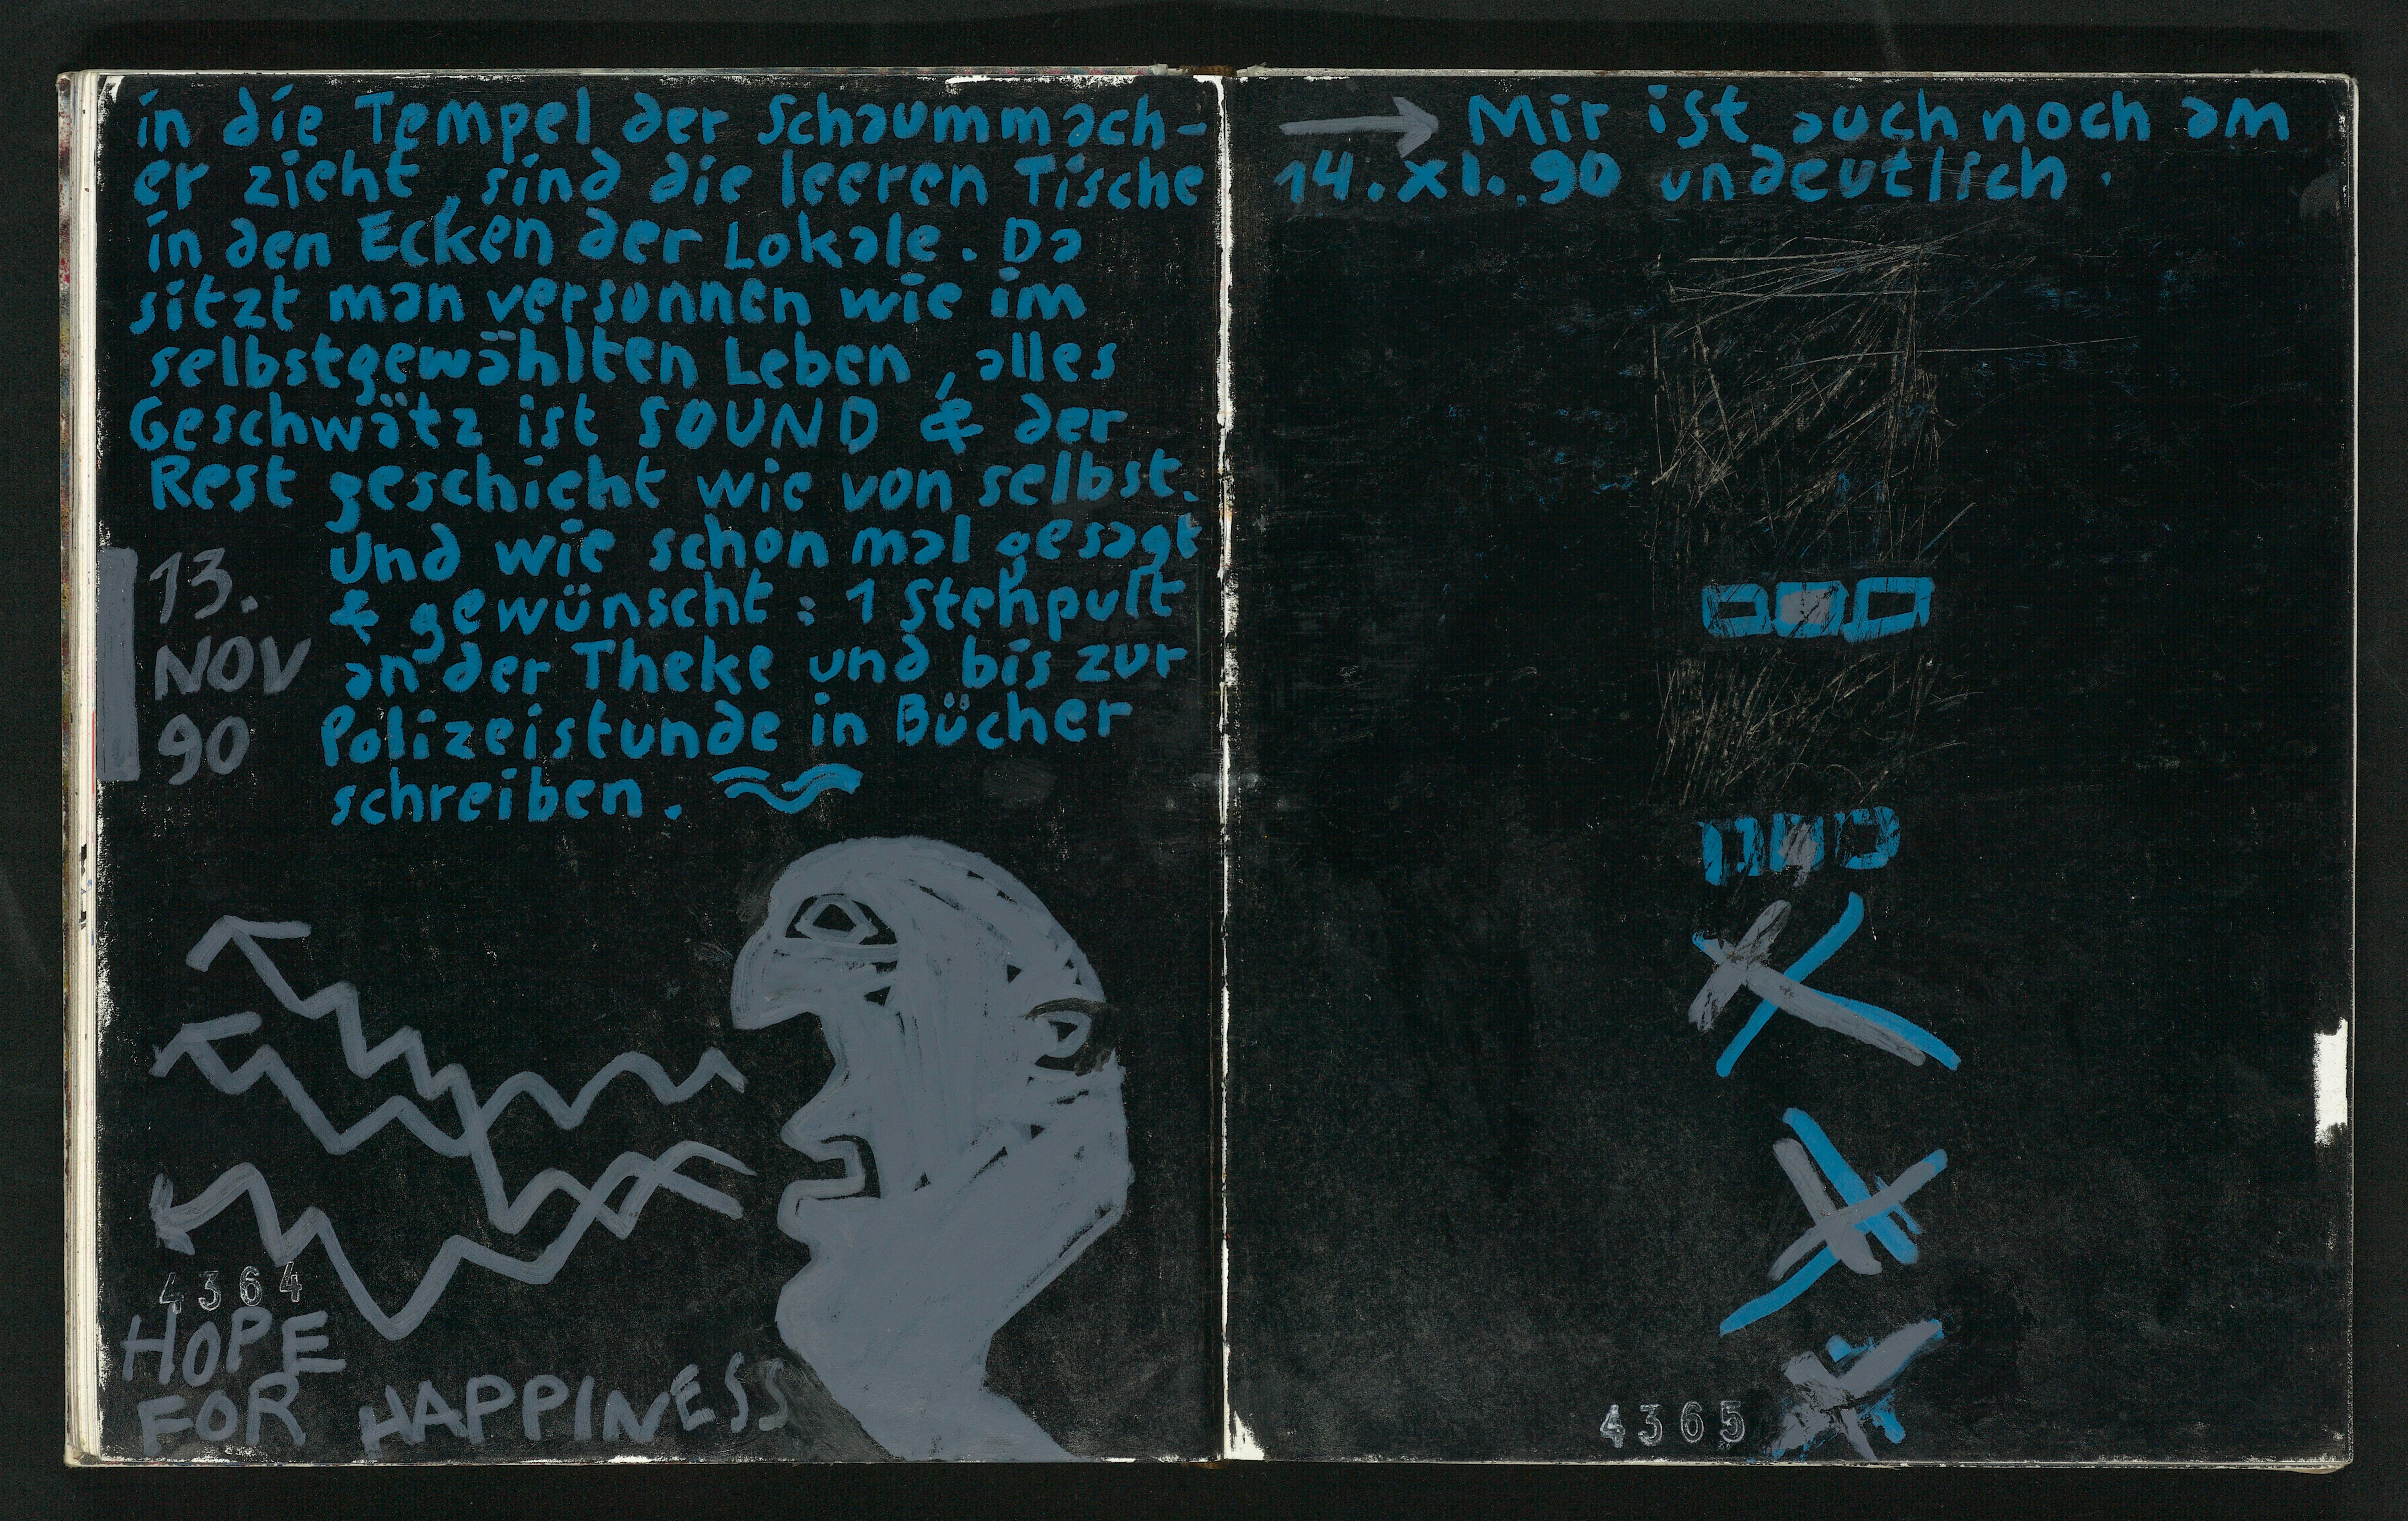 in die Tempel der Schaummach-
er zieht, sind die leeren Tische
in den Ecken der Lokale. Da
sitzt man versonnen wie im
selbstgewählten Leben, alles
Geschwätz ist SOUND & der
Rest geschieht wie von selbst.
und wie schon mal gesagt
& gewünscht : 1 Stehpult
an der Theke und bis zur
Polizeistunde in Bücher
schreiben.
13.
NOV
90
4364
HOPE
FOR HAPPINESS
Mir ist auch noch am
14. XI. 90 undeutlich.
4365